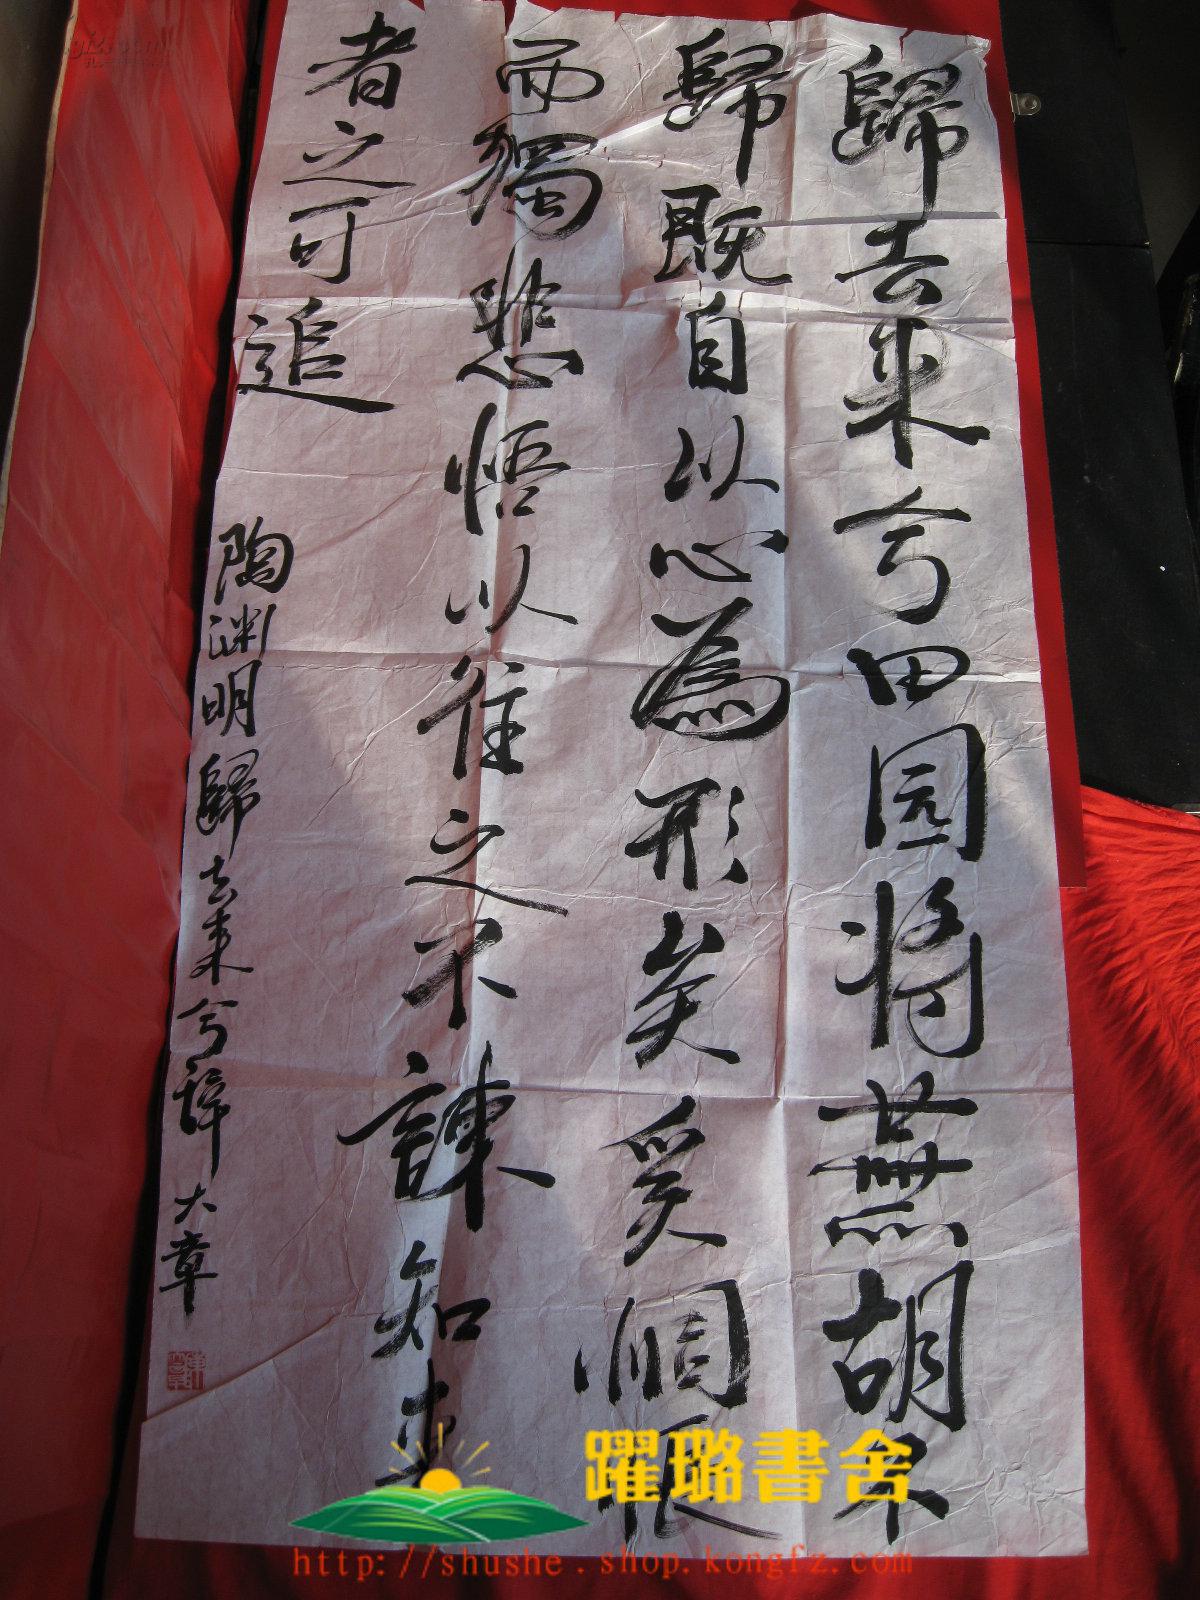 歸去来兮田园将蕪胡不
歸既自以心為形矣奚惆悵
而獨悲悟以往之不諫知来
者之可追
陶渊明歸去来兮辞 大章
躍璐書舍
http://shushe.shop.kongfz.com